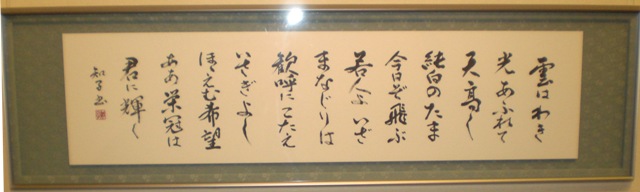 雲はわき
光あふれて
天高く
純白のたま
今日ぞ飛ぶ
若人よいざ
まなじりは
歓呼にこたえ
いさぎよし
ほほえむ希望
ああ栄冠は
君に輝く
和子書